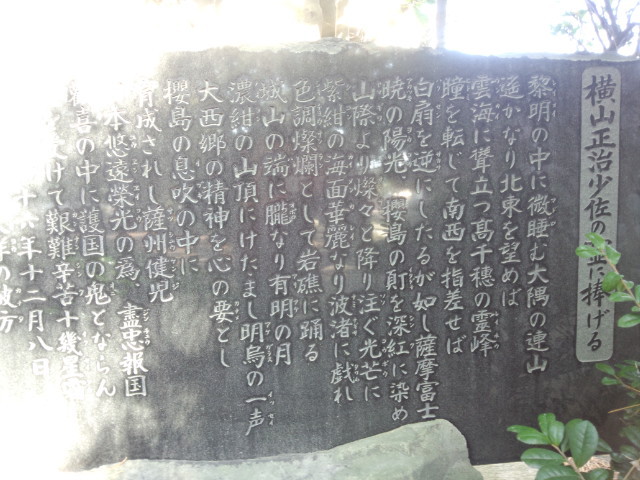 横山正治少佐の霊に捧げる
黎明の中に微睡む大隅の連山
遥かなり北東を望めば
雲海に聳立つ髙千穂の霊峰
瞳を転じて南西を指差せば
白扇を逆にしたるが如し薩摩富士
暁の陽光 櫻島の頂を深紅に染め
山際より燦々と降り注ぐ光芒に
紫紺の海面華麗なり波渚に戯れ
色調燦爛として岩礁に踊る
城山の端に朧なり有明の月
濃紺の山頂にけたまし明烏の一声
大西郷の精神を心の要とし
櫻島の息吹の中に
育成されし薩州健児
本悠遠榮光の為、盡忠報国
喜の中に護国の鬼とならん
けて艱難辛苦十幾星
十六年十二月八日
の彼方